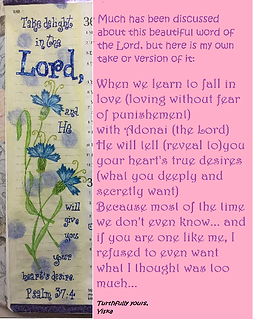 Take delight
in the
Lord,
and
He
will
give
you
your
heart's desire.
Psalm 37:4
Much has been discussed
about this beautiful word of
the Lord, but here is my own
take or version of it:
When we learn to fall in
love (loving without fear
of punishement)
with Adonai (the Lord)
He will tell (reveal to)you
your heart's true desires
(what you deeply and
secretly want)
Because most of the time
we don't even know... and
if you are one like me, I
refused to even want
what I thought was too
much...
Turthfully yours,
Yiska